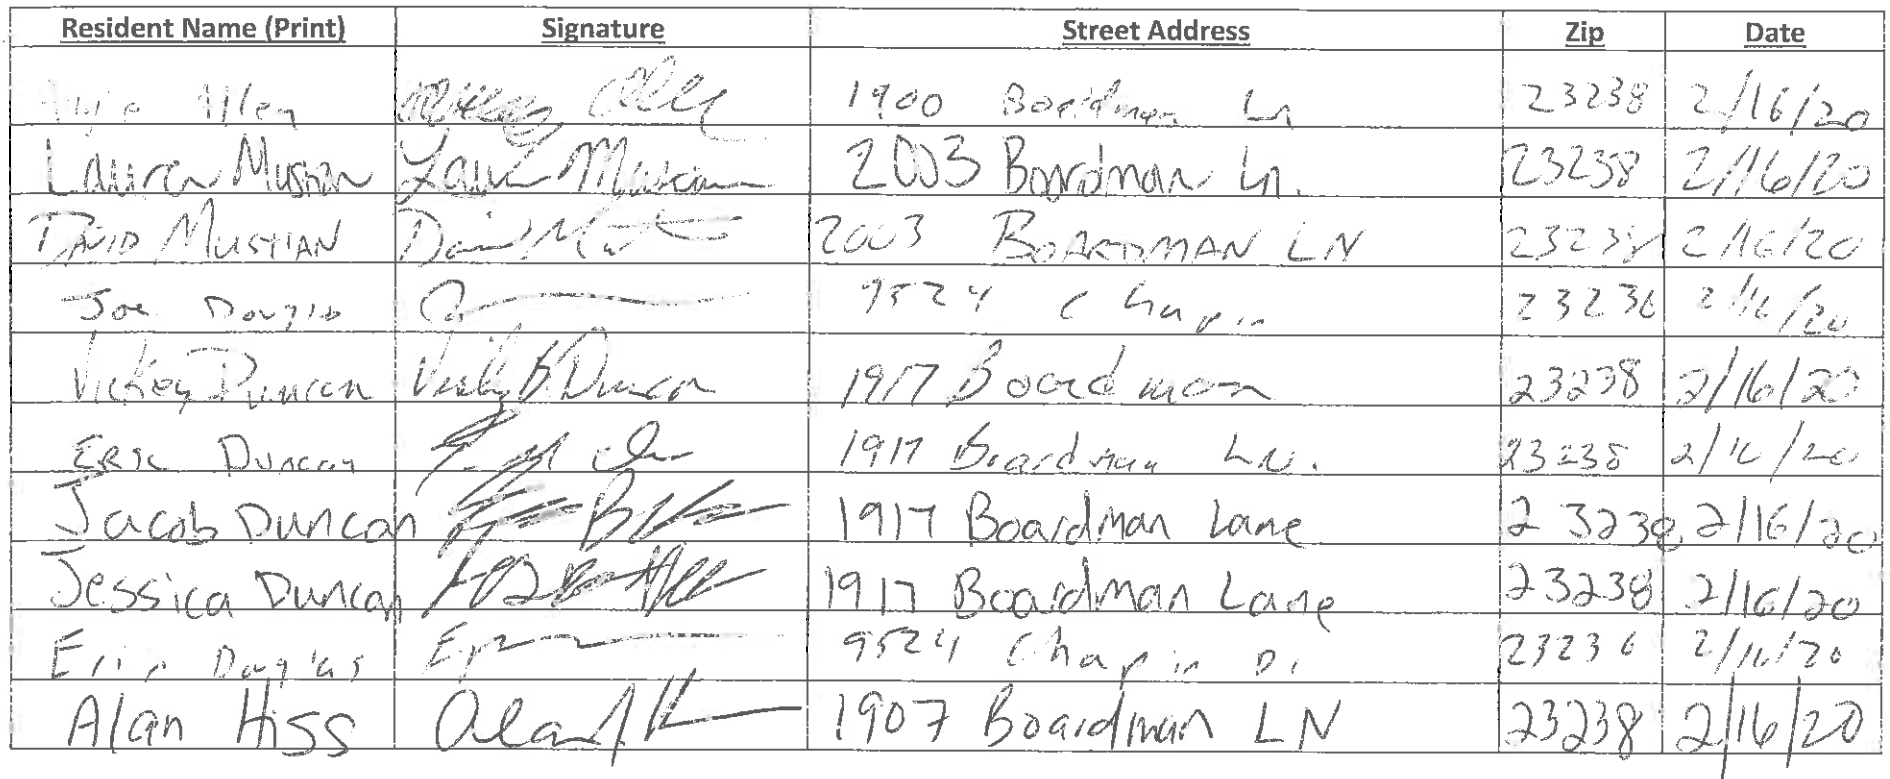 Resident Name (Print) Signature Street Address Zip Date
Allen 1900 Boardman Ln 23238 2/16/20
Laura Mustian Laura Mustian 2003 Boardman Ln. 23238 2/16/20
DAVID MUSTIAN David 2003 BOARDMAN LN 23238 2/16/20
Joe Douglas 9524 Chapin 23236 2/16/20
Vickey Duncan Vicky B Duncan 1917 Boardman 23238 2/16/20
Eric Duncan 1917 Boardman LN. 23238 2/16/20
Jacob Duncan 1917 Boardman Lane 23238 2/16/20
Jessica Duncan 1917 Boardman Lane 23238 2/16/20
Erin Douglas 9524 Chapin Dr 23236 2/16/20
Alan Hiss Alan 1907 Boardman LN 23238 2/16/20